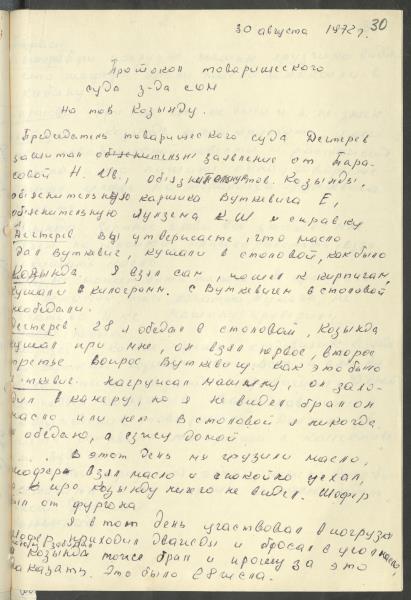 30
30 августа 1972 г.
Протокол товарищеского
суда з-да СОМ
на тов Козынду.
Председатель товарищеского суда Дегтерев
зачитал заявление от Тара-
совой Н. Ив., тов. Козынды,
обяснительную карщика Вуткевича Е,
обяснительную К.Ш и справку
Дегтерев Вы утверждаете, что масло
дал Вуткевич, кушали в столовой, как было
Козында. Я взял сам, пошел к кирпичам,
кушали с Вуткевичем в столовой
пообедали.
Дегтерев. 28 я обедал в столовой, Козында
кушал при мне, он взял первое, второе
третье Вопрос Вуткевичу. Как это было
нагружал машинку, он
в камеру, но я не видел брал он
масло или нет В столовой я никогда
обедаю, а езжу домой
В этот день мы грузили масло,
шофера взял масло и спокойно уехал,
про Козынду ничего не видел. Шофер
был от фургона
Я в тот день участвовал в погрузке
шофер приходил дважды и бросал в угол масло,
Козында тоже брал и прошу за это
наказать. Это было 28 числа.